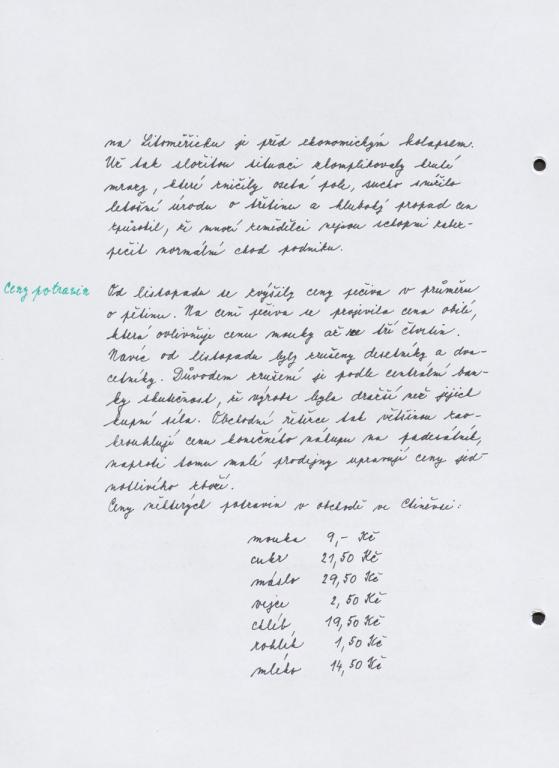 na Litoměřicku je před ekonomickým kolapsem.
Už tak složitou situaci zkomplikovaly kruté
mrazy, které zničily osetá pole, sucho snížilo
letošní úrodu o třetinu a hluboký propad cen
způsobil, že mnozí zemědělci nejsou schopni zabez-
pečit normální chod podniku.
Ceny potravin
Od listopadu se zvýšily ceny pečiva v průměru
o pětinu. Na ceně pečiva se projevila cena obilí,
která ovlivňuje cenu mouky až ze tří čtvrtin.
Navíc od listopadu byly zrušeny desetníky a dva-
cetníky. Důvodem zrušení je podle centrální ban-
ky skutečnost, že výroba byla dražší než jejich
kupní síla. Obchodní řetězce tak většinou zao-
krouhlují cenu konečného nákupu na padesátník,
naproti tomu malé prodejny upravují ceny jed-
notlivého zboží.
Ceny některých potravin v obchodě ve Ctiněvsi:
mouka 9,- Kč
cukr 21,50 Kč
máslo 29,50 Kč
vejce 2,50 Kč
chléb 19,50 Kč
rohlík 1,50 Kč
mléko 14,50 Kč